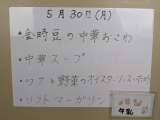 5月30日(月)
・金時豆の中華おこわ
・中華スープ
・ツナと野菜のオイスターソース
・ソフトマーガリン
牛乳